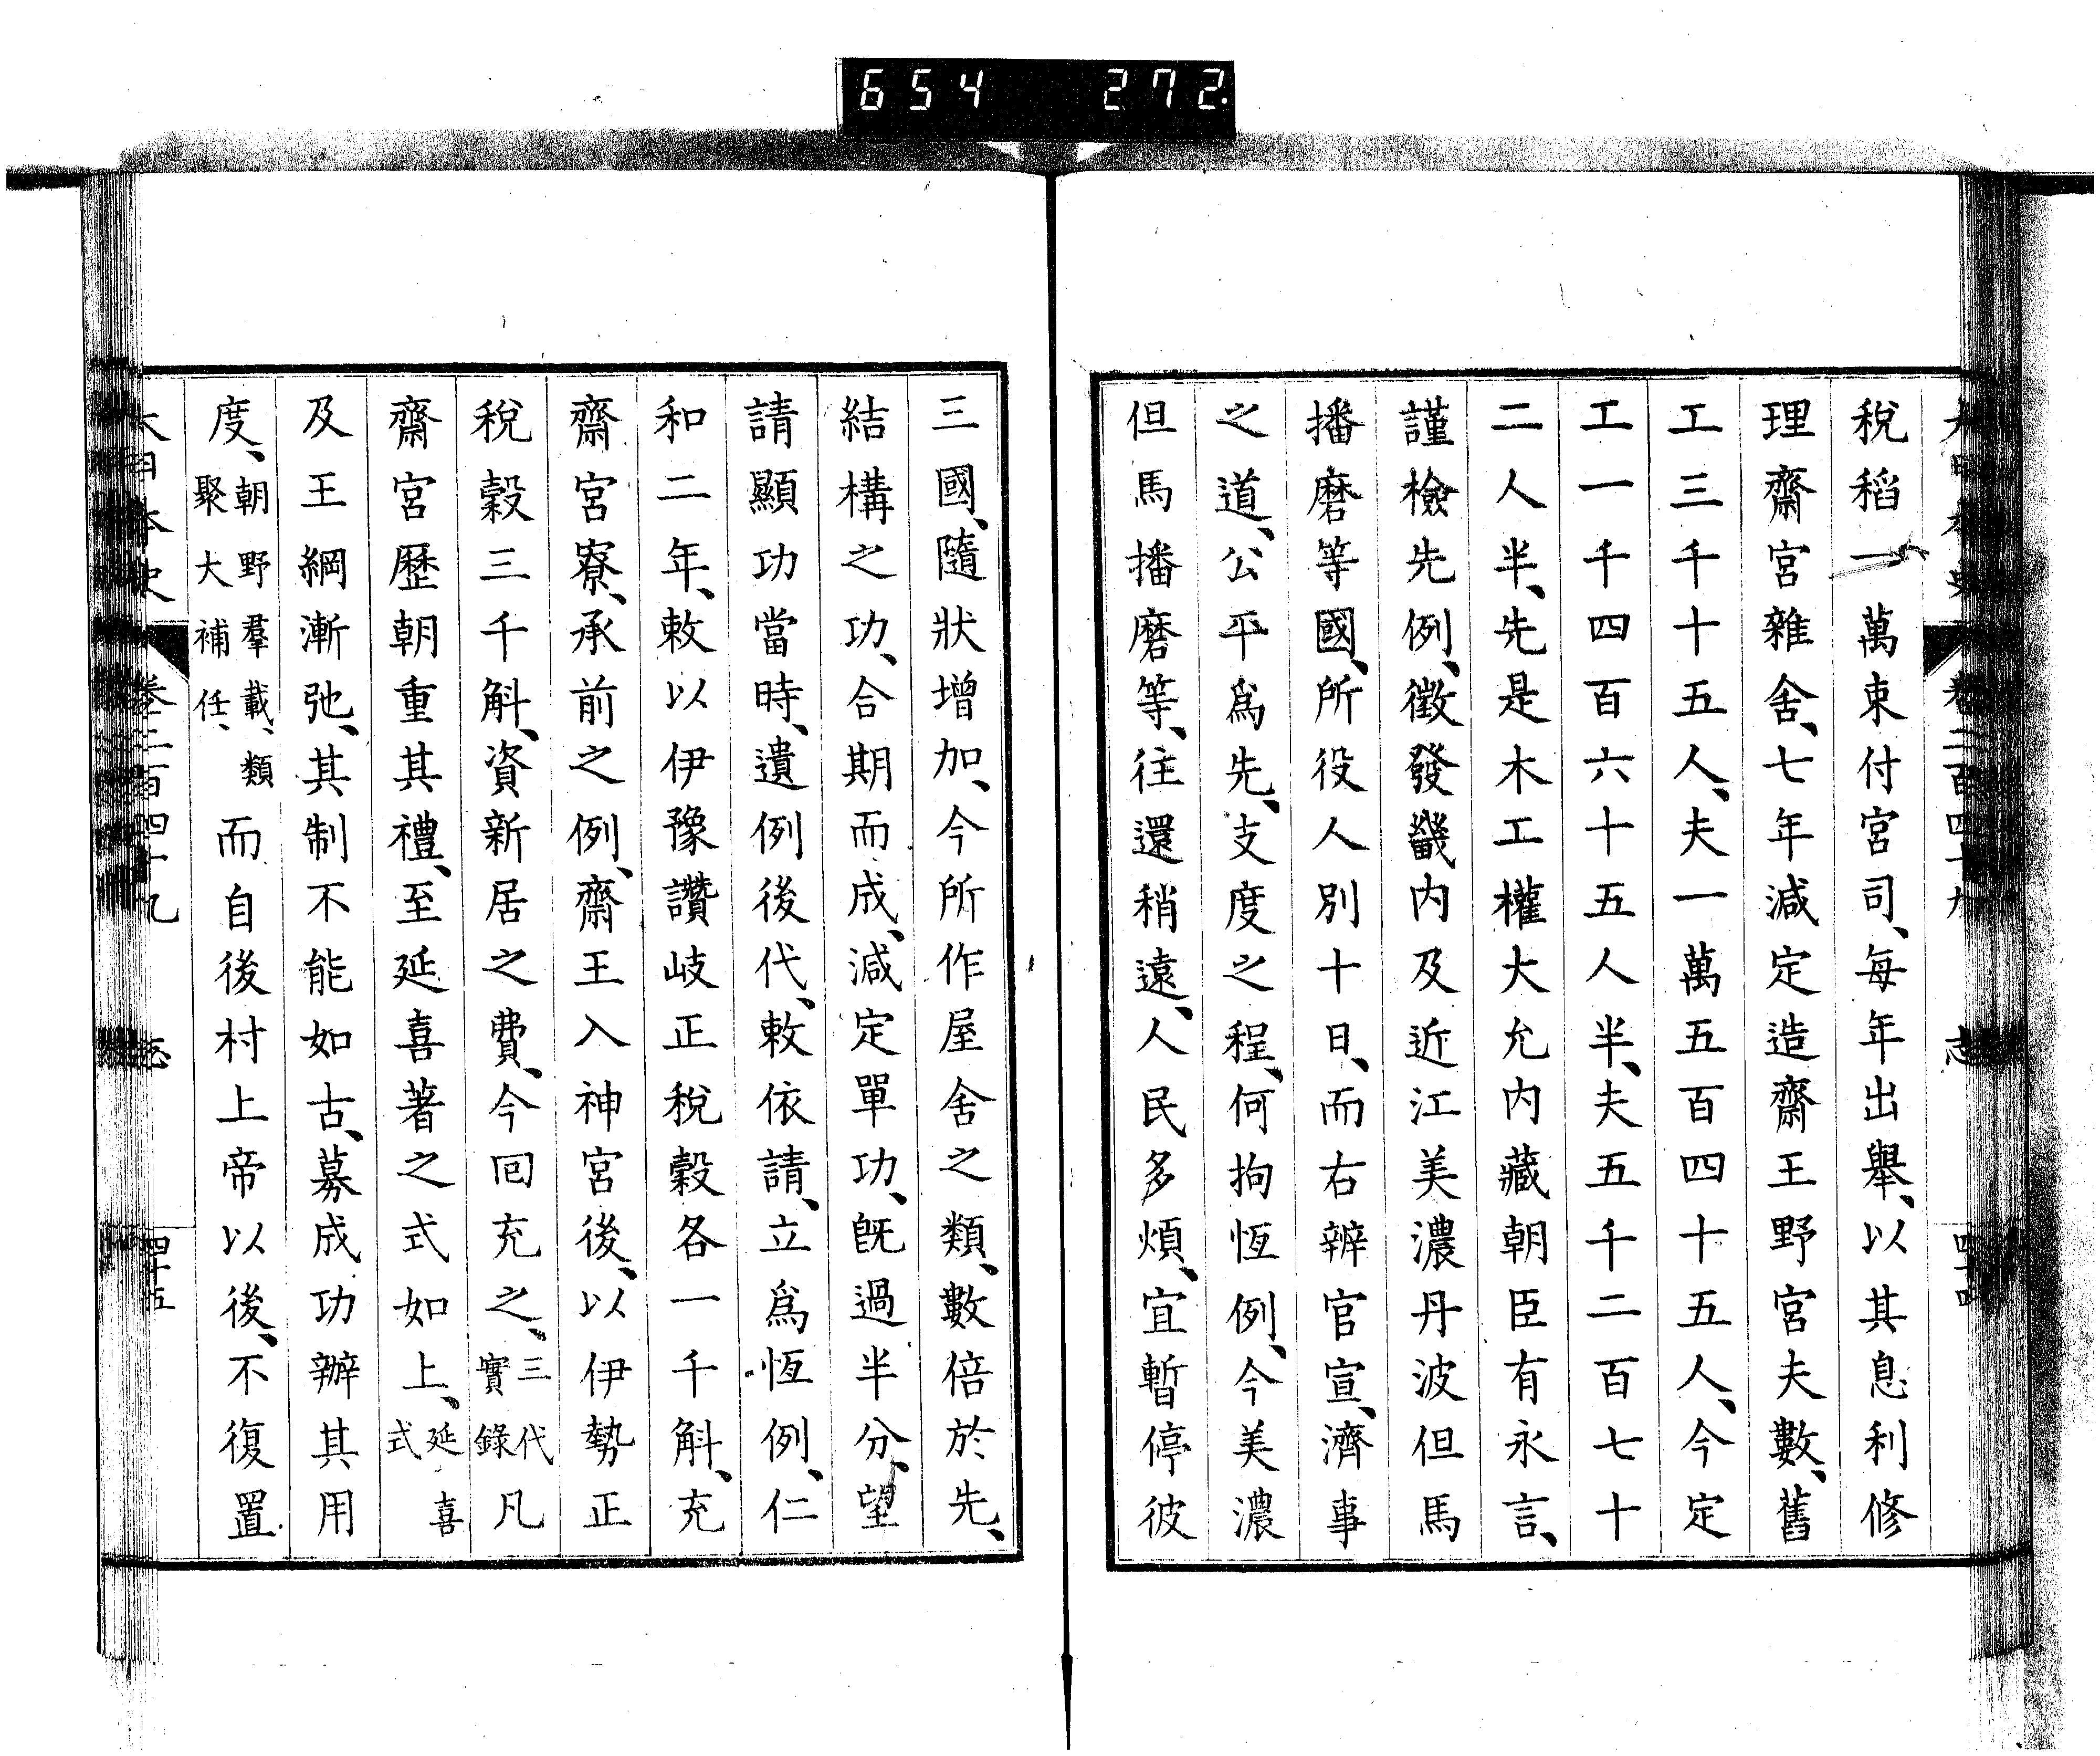 654 272.
大日本史 卷二百四十九 志 四十四
稅稻一萬束付宮司、每年出舉、以其息利修
理齋宮雜舍、七年減定造齋王野宮夫數、舊
工三千十五人、夫一萬五百四十五人、今定
工一千四百六十五人半、夫五千二百七十
二人半、先是木工權大允內藏朝臣有永言、
謹檢先例、徵發畿內及近江美濃丹波但馬
播磨等國、所役人別十日、而右辨官宣、濟事
之道、公平爲先、支度之程、何拘恆例、今美濃
但馬播磨等、往還稍遠、人民多煩、宜暫停彼
三國、隨狀增加、今所作屋舍之類、數倍於先、
結構之功、合期而成、減定單功、旣過半分、望
請顯功當時、遺例後代、敕依請、立爲恆例、仁
和二年、敕以伊豫讚岐正稅穀各一千斛、充
齋宮寮、承前之例、齋王入神宮後、以伊勢正
稅穀三千斛、資新居之費、今回充之、三代實錄凡
齋宮歷朝重其禮、至延喜著之式如上、延喜式
及王綱漸弛、其制不能如古、募成功辦其用
度、朝野羣載、類聚大補任、而自後村上帝以後、不復置
大日本史 卷二百四十九 志 四十五